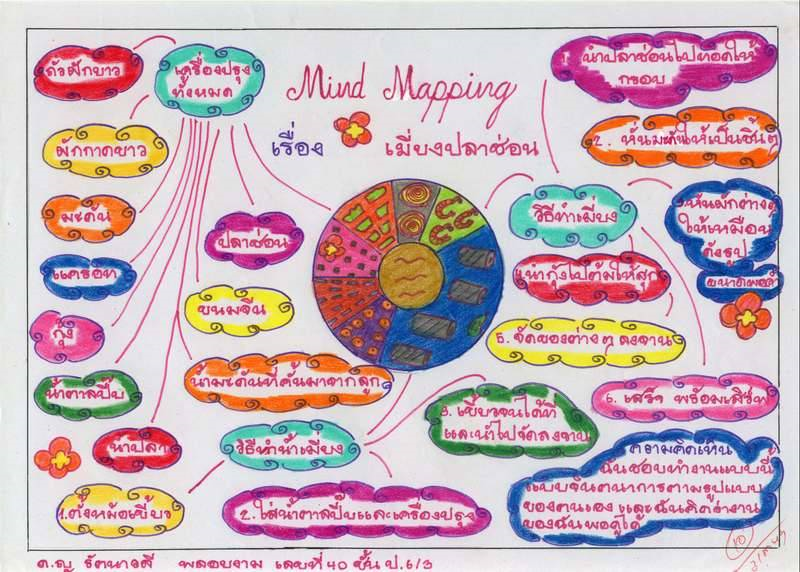 Mind Mapping
เรื่อง เมี่ยงปลาช่อน
เครื่องปรุง
ทั้งหมด
ถั่วฝักยาว
ผักกาดขาว
มะดัน
แครอท
กุ้ง
น้ำตาลปี๊บ
น้ำปลา
ปลาช่อน
ขนมจีน
น้ำมะดันที่คั้นมาจากลูก
วิธีทำน้ำเมี่ยง
1. ตั้งหม้อเคี่ยว
2. ใส่น้ำตาลปี๊บและเครื่องปรุง
3. เคี่ยวจนได้ที่
และนำไปจัดลงจาน
วิธีทำเมี่ยง
1. นำปลาช่อนไปทอดให้
กรอบ
2. หั่นมะดันให้เป็นชิ้นๆ
หั่นผักต่างๆ
ให้เหมือน
ดังรูป
ขนาดพอคำ
นำกุ้งไปต้มให้สุก
5. จัดของต่างๆ ลงจาน
6. เสร็จ พร้อมเสิร์ฟ
ความคิดเห็น
ฉันชอบทำงานแบบนี้
แบบจินตนาการตามรูปแบบ
ของตนเอง และฉันคิดว่างาน
ของฉันพอดูได้
10
ด.ญ รัตนาวดี พลอยงาม เลขที่ 40 ชั้น ป.6/3